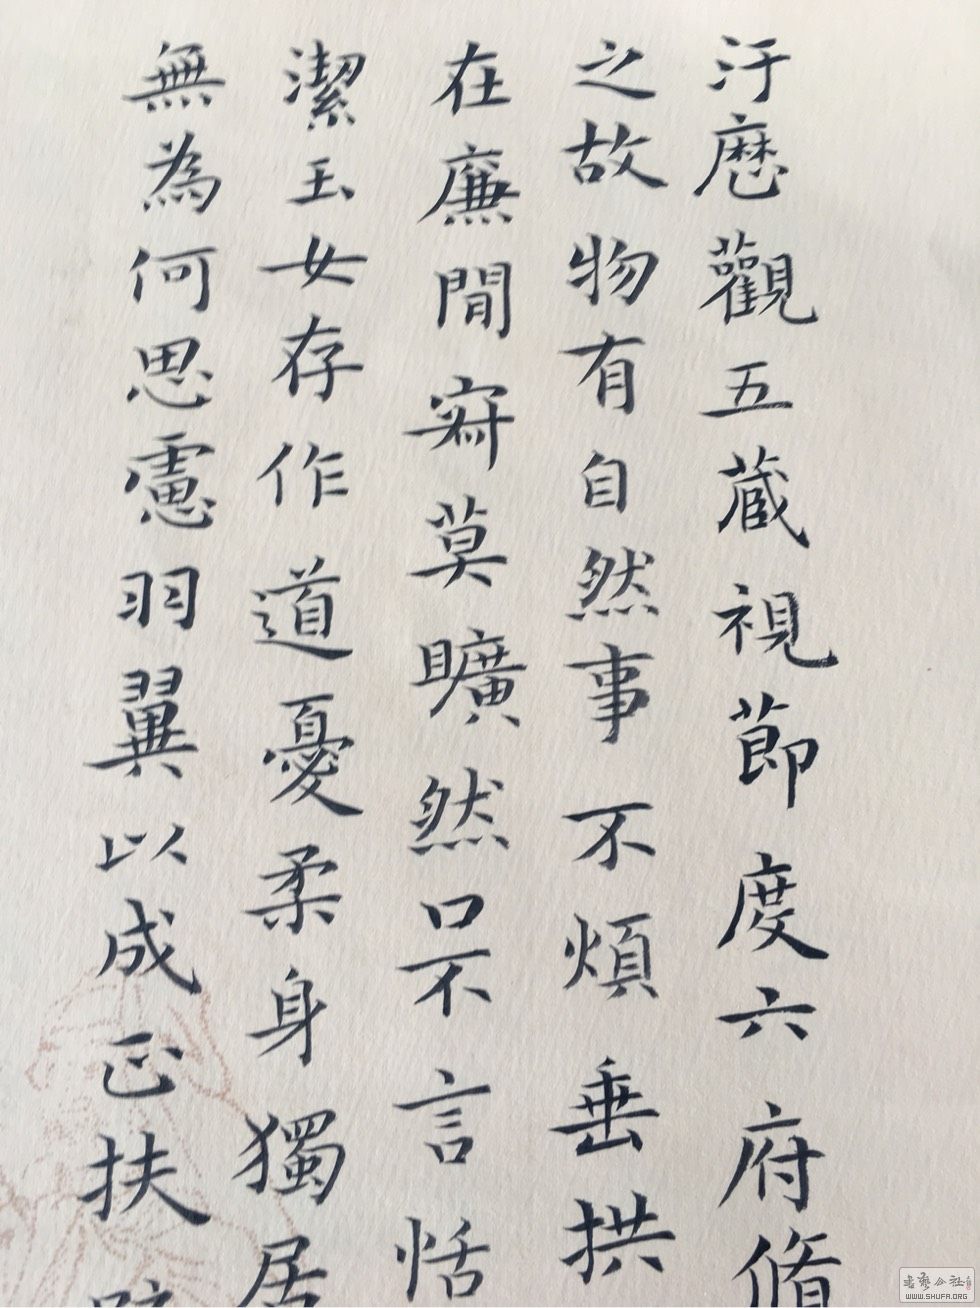 汙歷觀五藏視節度六府脩
之故物有自然事不煩垂拱
在廉閒寂莫曠然口不言恬
潔玉女存作道憂柔身獨居
無為何思慮羽翼以成正扶
書藝公社
WWW.SHUFA.ORG